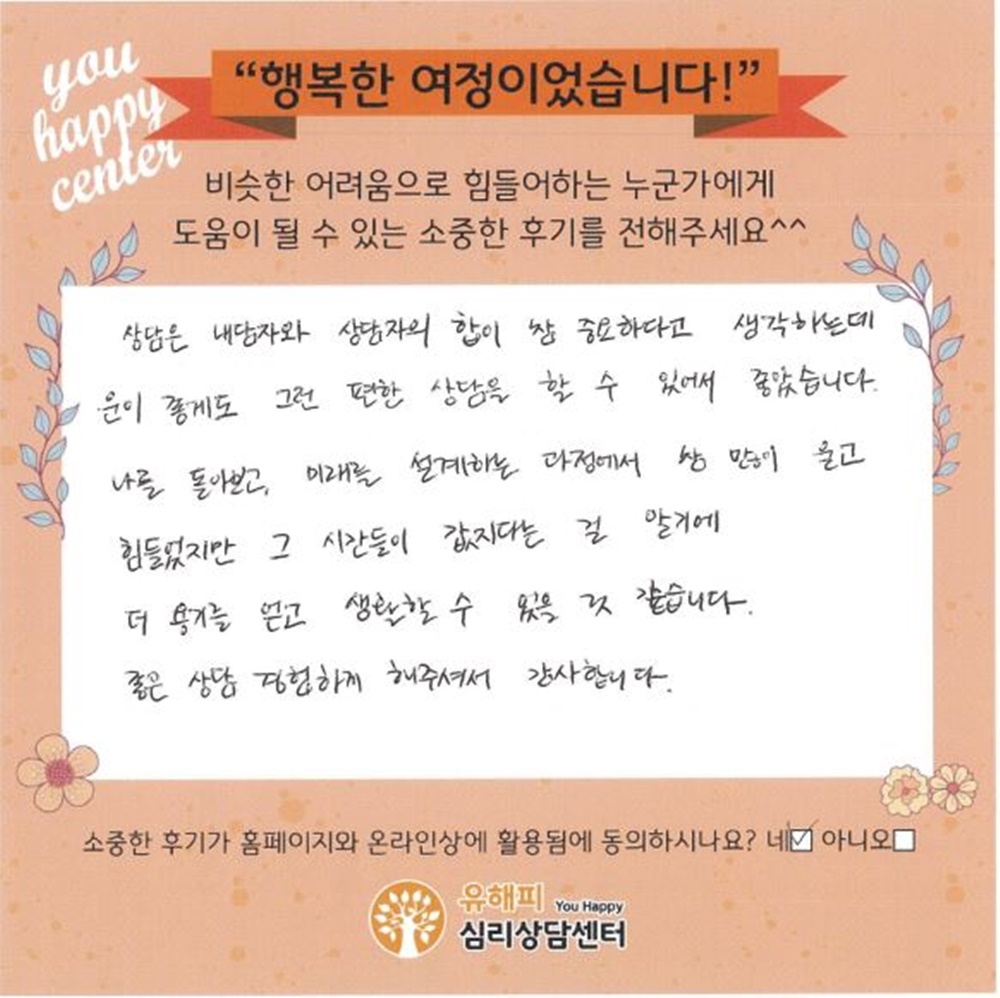 you
happy
center
“행복한 여정이었습니다!”
비슷한 어려움으로 힘들어하는 누군가에게
도움이 될 수 있는 소중한 후기를 전해주세요^^
상담은 내담자와 상담자의 합이 참 중요하다고 생각하는데
운이 좋게도 그런 편한 상담을 할 수 있어서 좋았습니다.
나를 돌아보고, 미래를 설계하는 과정에서 참 많이 울고
힘들었지만 그 시간들이 값지다는 걸 알기에
더 용기를 얻고 생활할 수 있을 것 같습니다.
좋은 상담 경험하게 해주셔서 감사합니다.
소중한 후기가 홈페이지와 온라인상에 활용됨에 동의하시나요? 네☑ 아니오☐
유해피 You Happy
심리상담센터